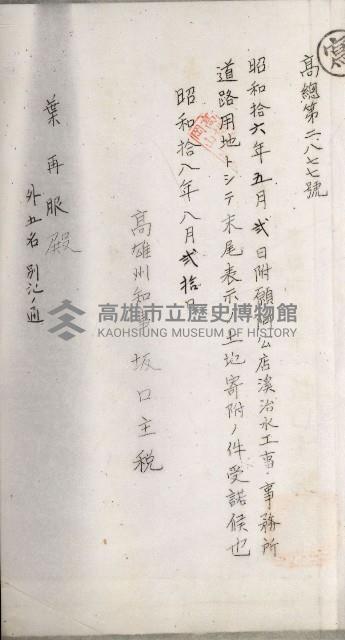 寫
高總第二八七七號
昭和拾六年五月弍日附願阿公店溪治水工事事務所
道路用地トシテ末尾表示ノ土地寄附ノ件受諾候也
昭和拾八年八月弍拾日
高雄州知事坂口主税
葉再服殿
外五名別記ノ通
高雄市立歷史博物館
KAOHSIUNG MUSEUM OF HISTORY